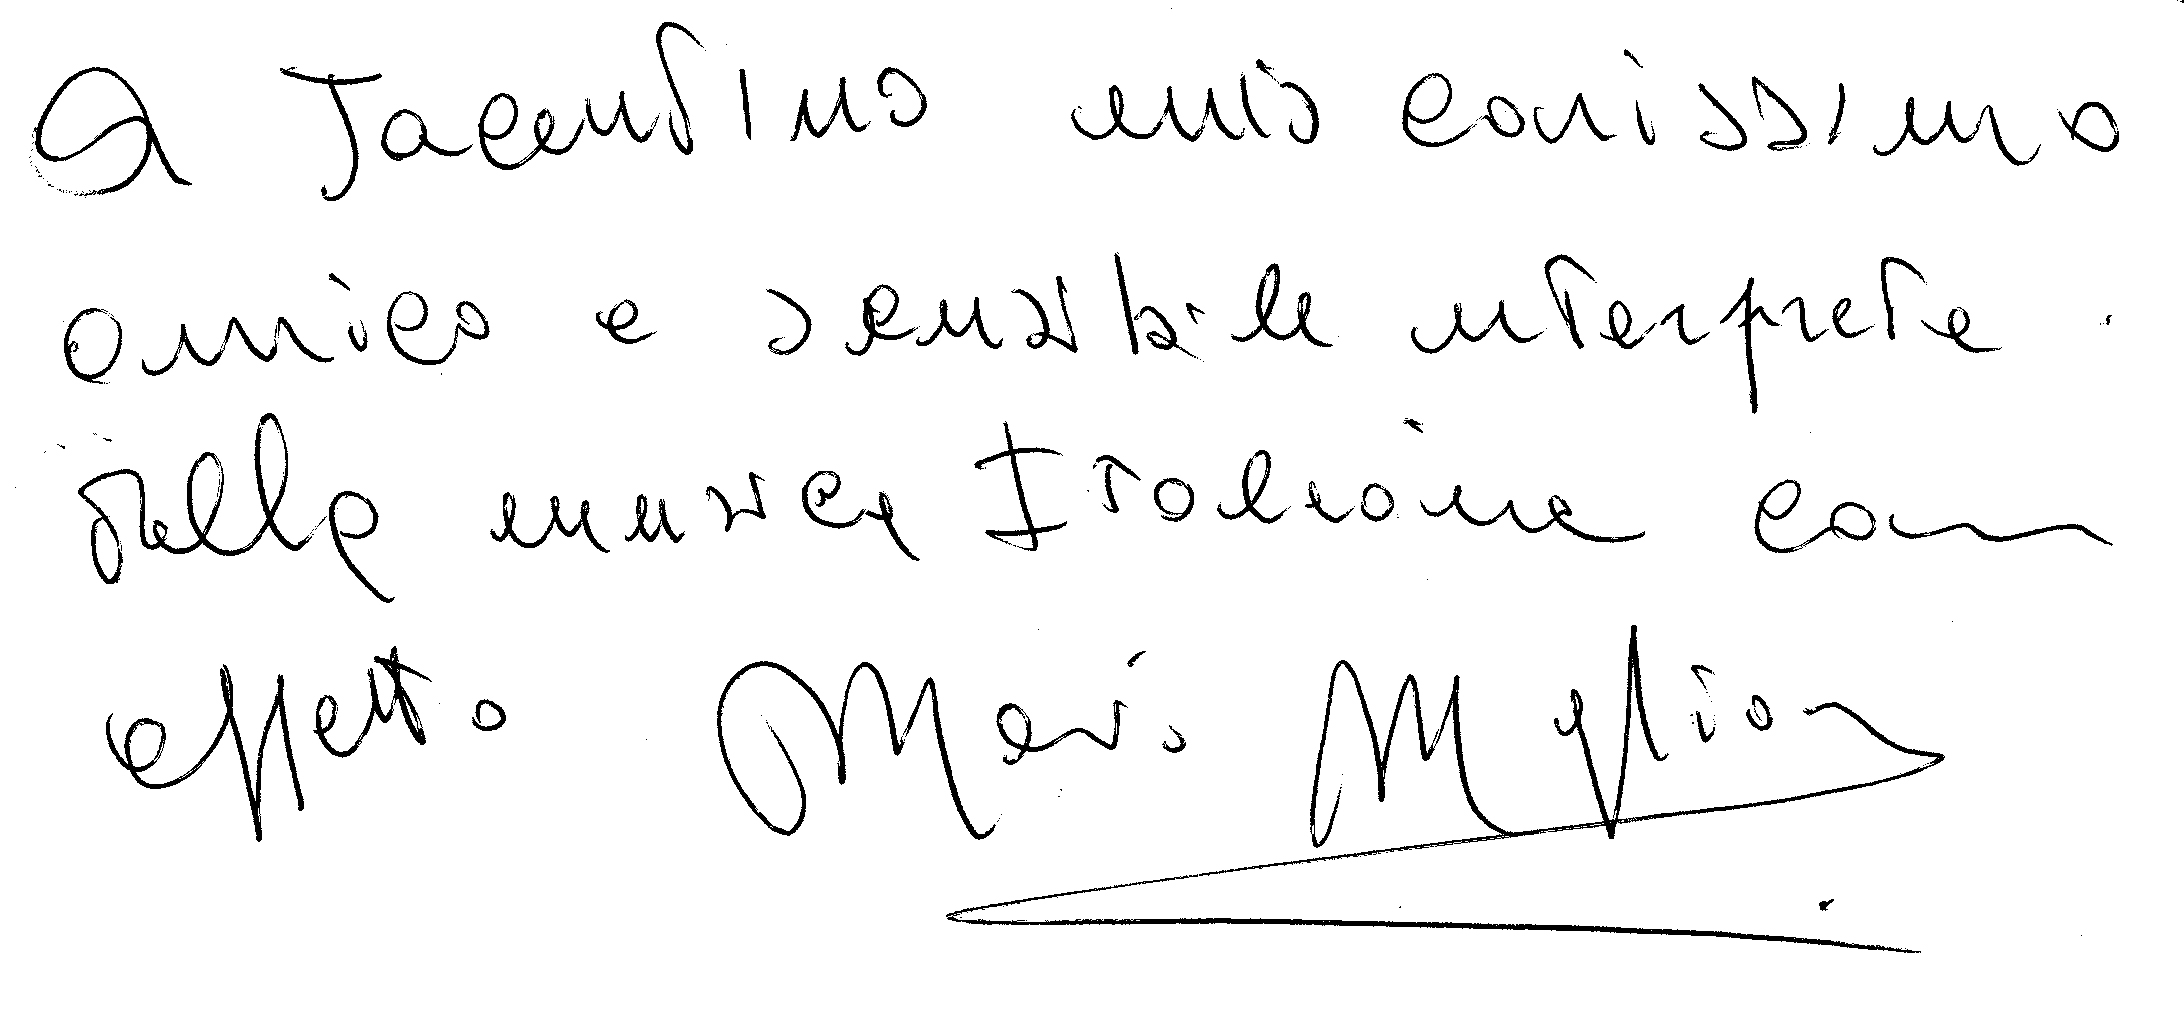 A Jacentino mio carissimo
amico e sensibile interprete
della musica Italiana con
affetto Mario